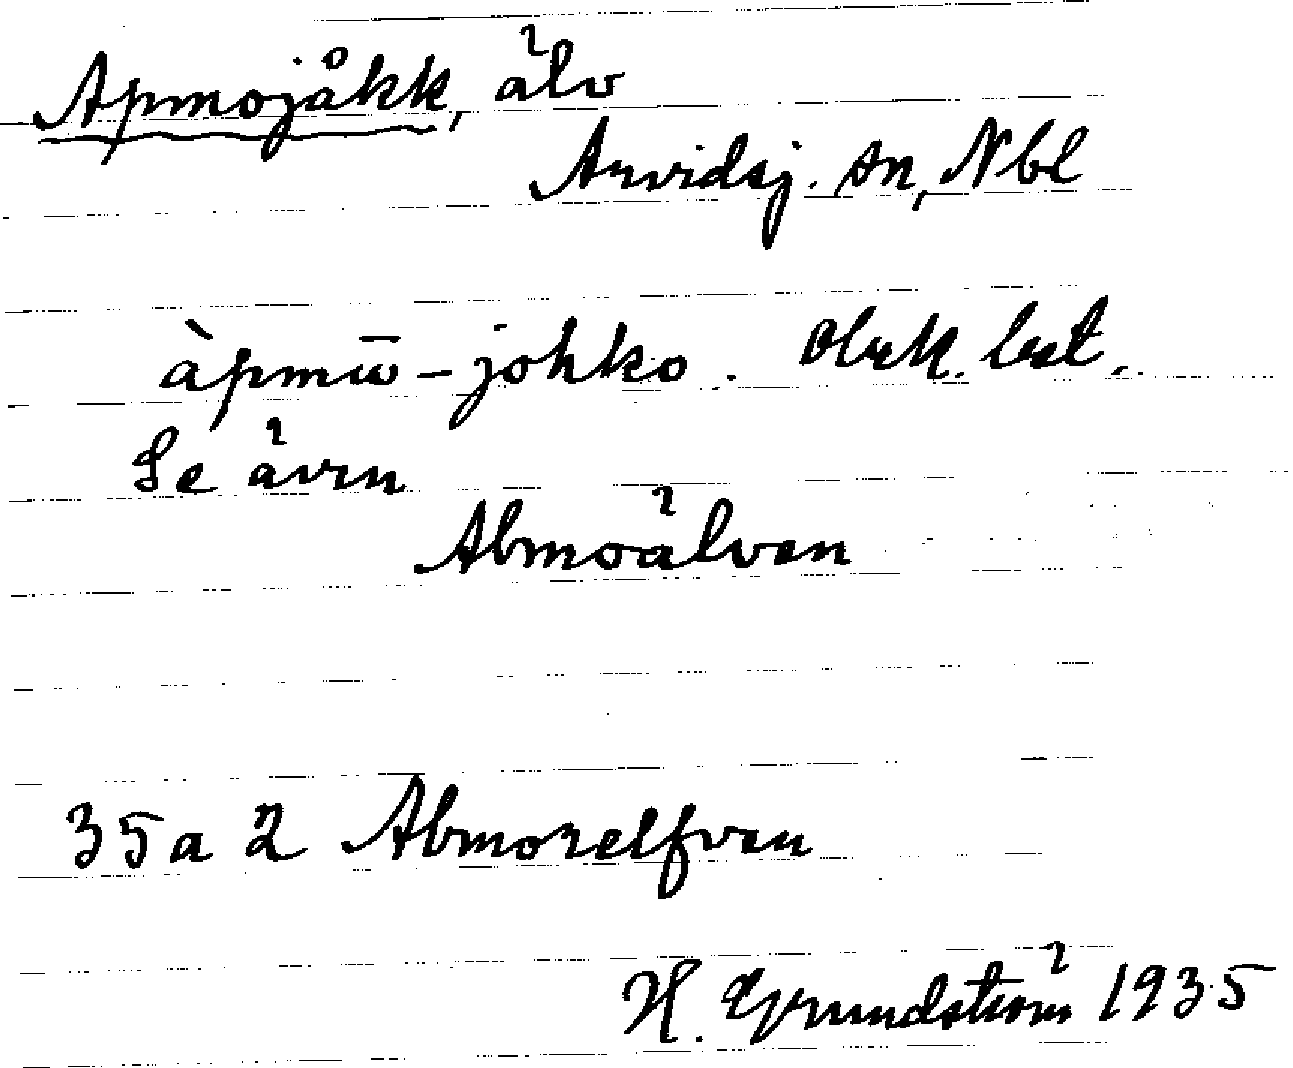 Apmojåkk, älv
Arvidsj. sn, Nbl
àpmω̄-johko. Obek. bet.
Se även
Abmoälven
35 a 2 Abmorelfven
H. Grundström 1935